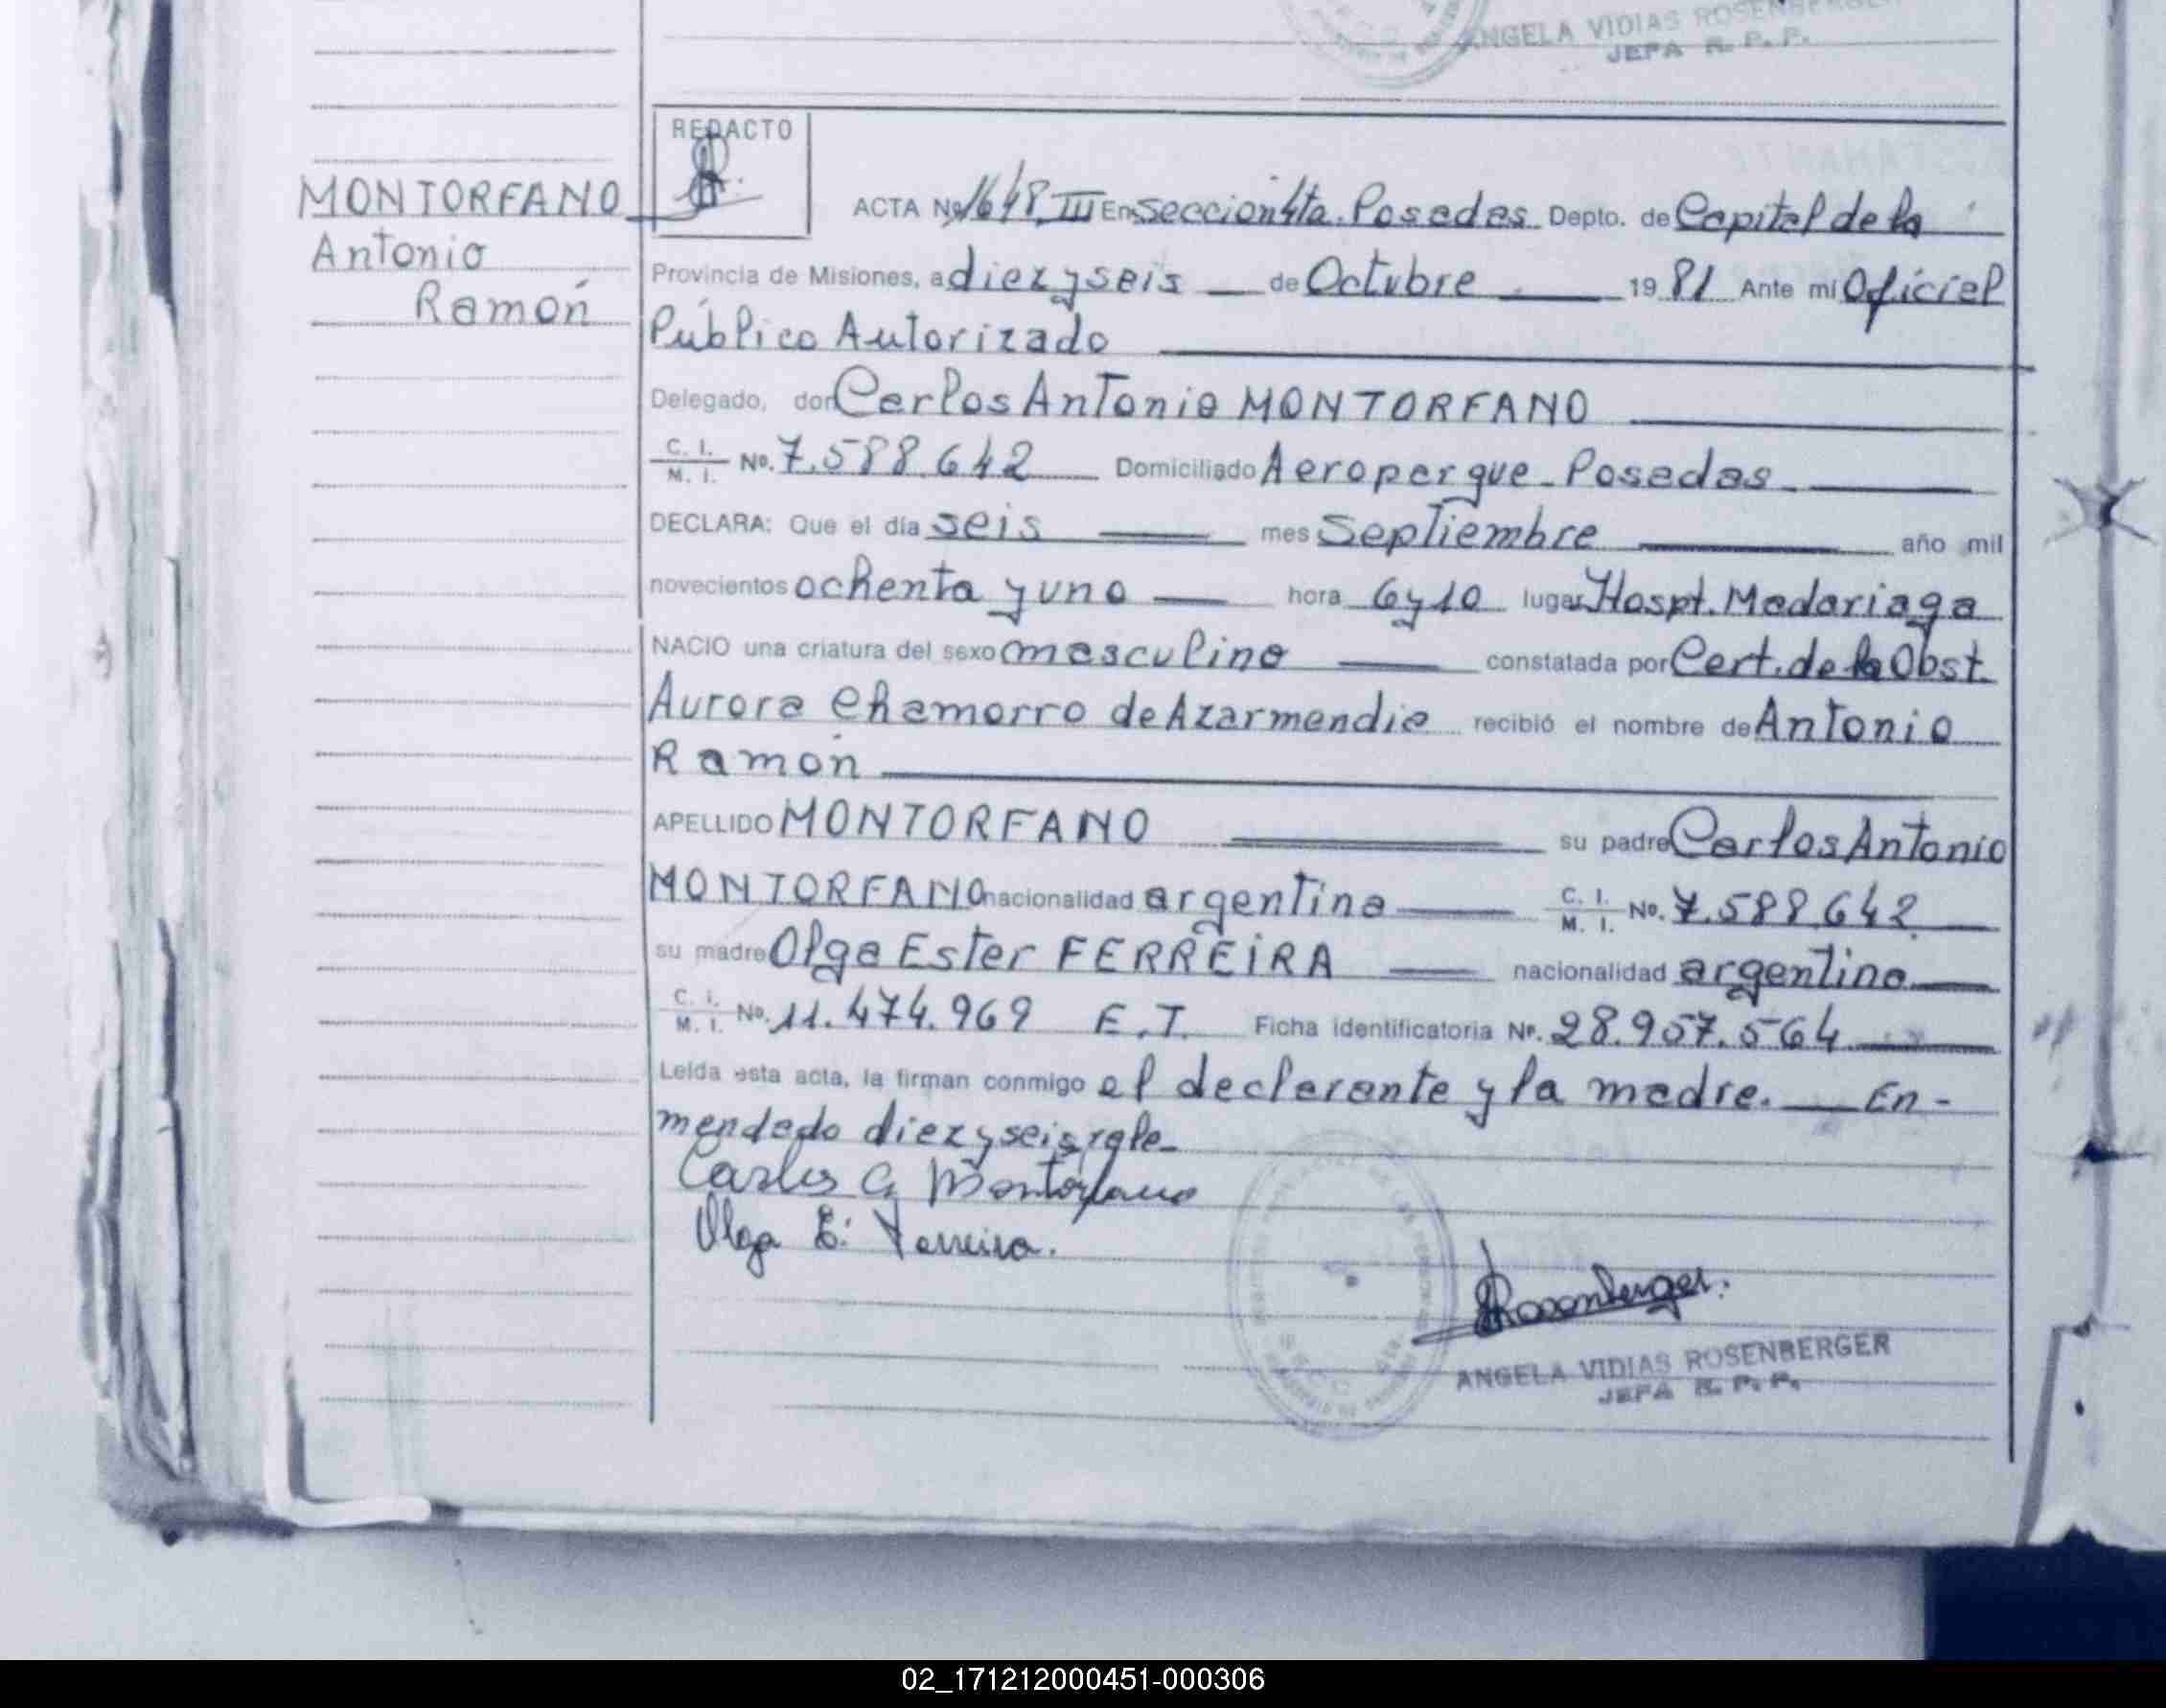 ANGELA VIDIAS ROSENBERGER
JEFA R. P. P.
REDACTO
MONTORFANO
Antonio
Ramón
ACTA Nº 1648 III En Sección 4ta. Posadas Depto. de Capital de la
Provincia de Misiones, a diez y seis de Octubre 1981 Ante mí Oficial
Público Autorizado
Delegado, don Carlos Antonio MONTORFANO
C. I. M. I. Nº. 7.588.642 Domiciliado Aeroparque - Posadas
DECLARA: Que el día seis mes Septiembre año mil
novecientos ochenta y uno hora 6 y 10 lugar Hospt. Madariaga
NACIO una criatura del sexo masculino constatada por Cert. de la Obst.
Aurora Chamorro de Azarmendia recibió el nombre de Antonio
Ramón
APELLIDO MONTORFANO su padre Carlos Antonio
MONTORFANO nacionalidad argentina C. I. M. I. Nº. 7.588.642
su madre Olga Ester FERREIRA nacionalidad argentina
C. I. M. I. Nº. 11.474.969 E.T. Ficha identificatoria Nº. 28.957.564
Leída esta acta, la firman conmigo el declarante y la madre. En-
mendado diez y seis, vale-
Carlos A Montorfano
Olga E. Ferreira.
Rosenberger.
ANGELA VIDIAS ROSENBERGER
JEFA R. P. P.
02_171212000451-000306